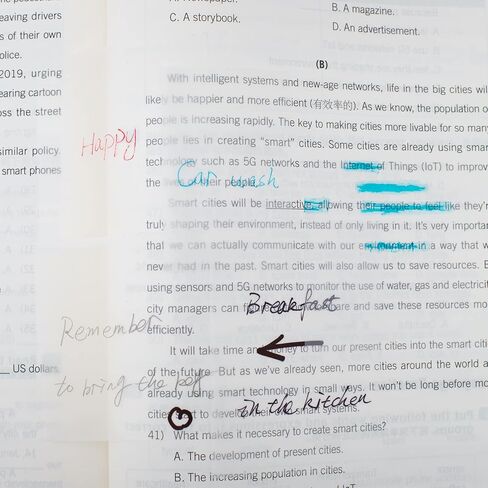 A newspaper.
B. A magazine.
C. A storybook.
D. An advertisement.
eaving drivers
s of their own
olice.
2019, urging
earing cartoon
oss the street
similar policy.
smart phones
US dollars.
(B)
With intelligent systems and new-age networks, life in the big cities will
likely be happier and more efficient (有效率的). As we know, the population o
people is increasing rapidly. The key to making cities more livable for so many
people lies in creating "smart" cities. Some cities are already using smar
technology such as 5G networks and the Internet of Things (IoT) to improv
the lives of their people.
Smart cities will be interactive, allowing their people to feel like they're
truly shaping their environment, instead of only living in it. It's very importa
that we can actually communicate with our environment in a way that w
never had in the past. Smart cities will also allow us to save resources. B
using sensors and 5G networks to monitor the use of water, gas and electricit
city managers can and save these resources mo
efficiently.
It will take time and money to turn our present cities into the smart citi
of the future. But as we've already seen, more cities around the world a
already using smart technology in small ways. It won't be long before mo
cities start to develop their smart systems.
41) What makes it necessary to create smart cities?
A. The development of present cities.
B. The increasing population in cities.
Happy
Car wash
Breakfast
Remember
to bring the key
in the kitchen